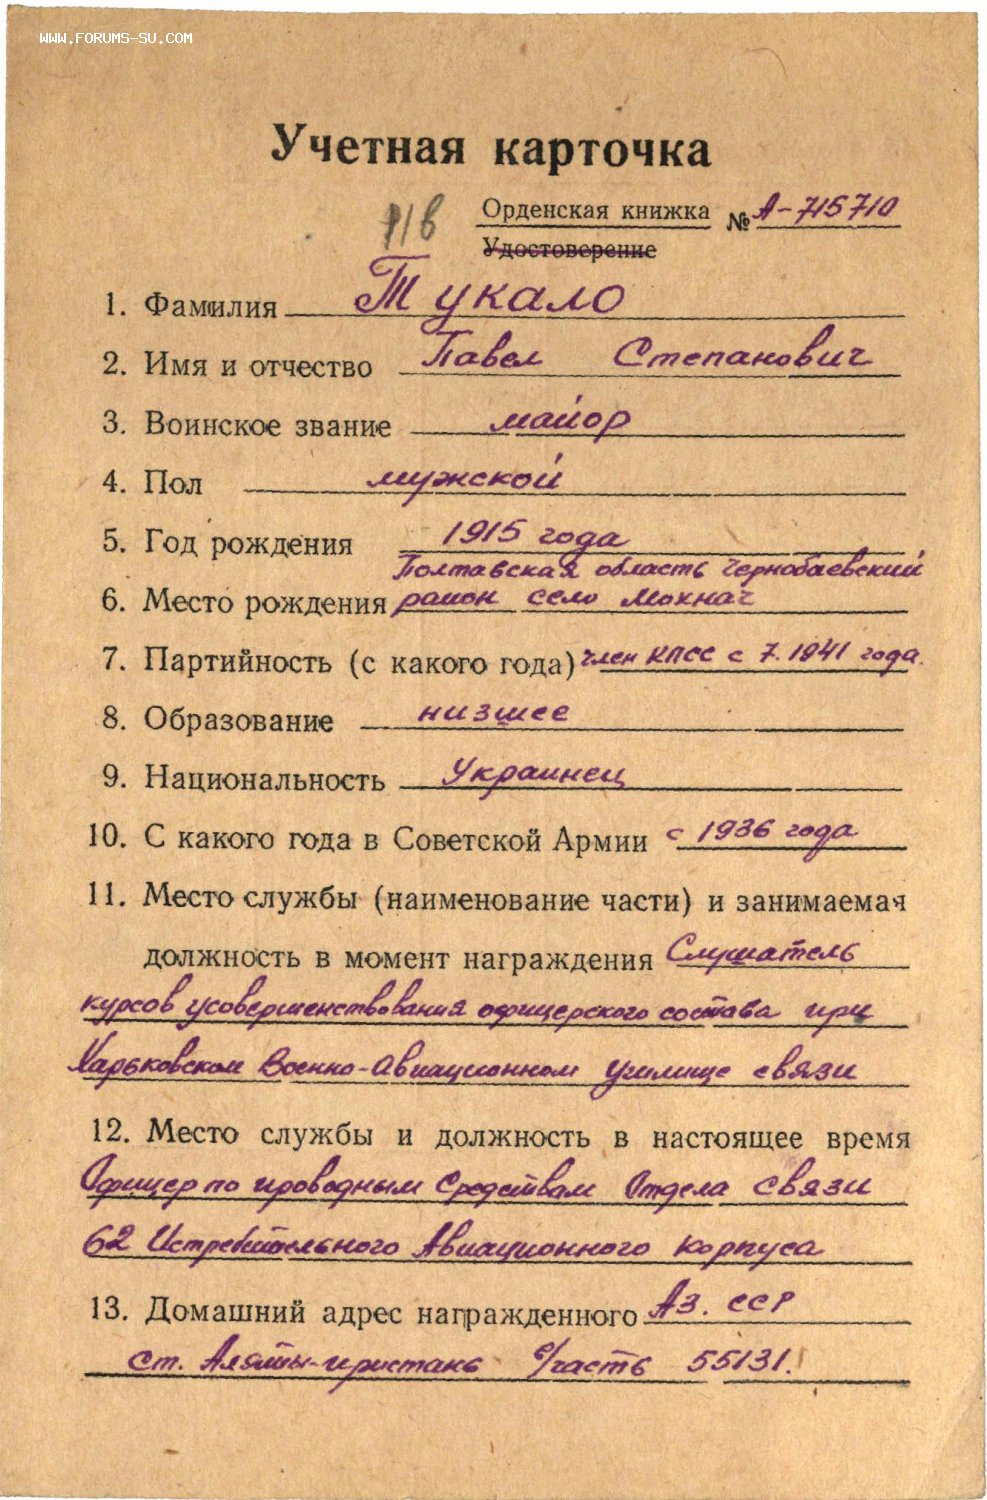 WWW.FORUMS-SU.COM
Учетная карточка
Орденская книжка № А-715710
Удостоверение
1. Фамилия Тукало
2. Имя и отчество Павел Степанович
3. Воинское звание майор
4. Пол мужской
5. Год рождения 1915 года
Полтавская область Чернобаевский
6. Место рождения район село Мохнач
7. Партийность (с какого года) член КПСС с 7.1941 года.
8. Образование низшее
9. Национальность Украинец
10. С какого года в Советской Армии с 1936 года
11. Место службы (наименование части) и занимаемая
должность в момент награждения Слушатель
курсов усовершенствования офицерского состава при
Харьковском Военно-Авиационном училище связи
12. Место службы и должность в настоящее время
Офицер по проводным Средствам Отдела связи
62 Истребительного Авиационного корпуса
13. Домашний адрес награжденного Аз. ССР
ст. Аляты-пристань в/часть 55131.